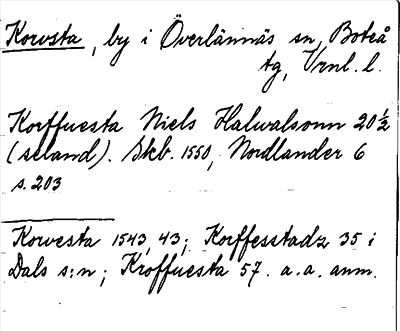 Korvsta, by i Överlännäs sn, Boteå
tg, Vrnl. l.
Korffuesta Niels Halwalsonn 20½
(seland). Skb. 1550, Nordlander 6
s. 203
Korvesta 1543, 43; Korffesstadz 35 i
Dals s:n; Kroffuesta 57. a. a. anm.